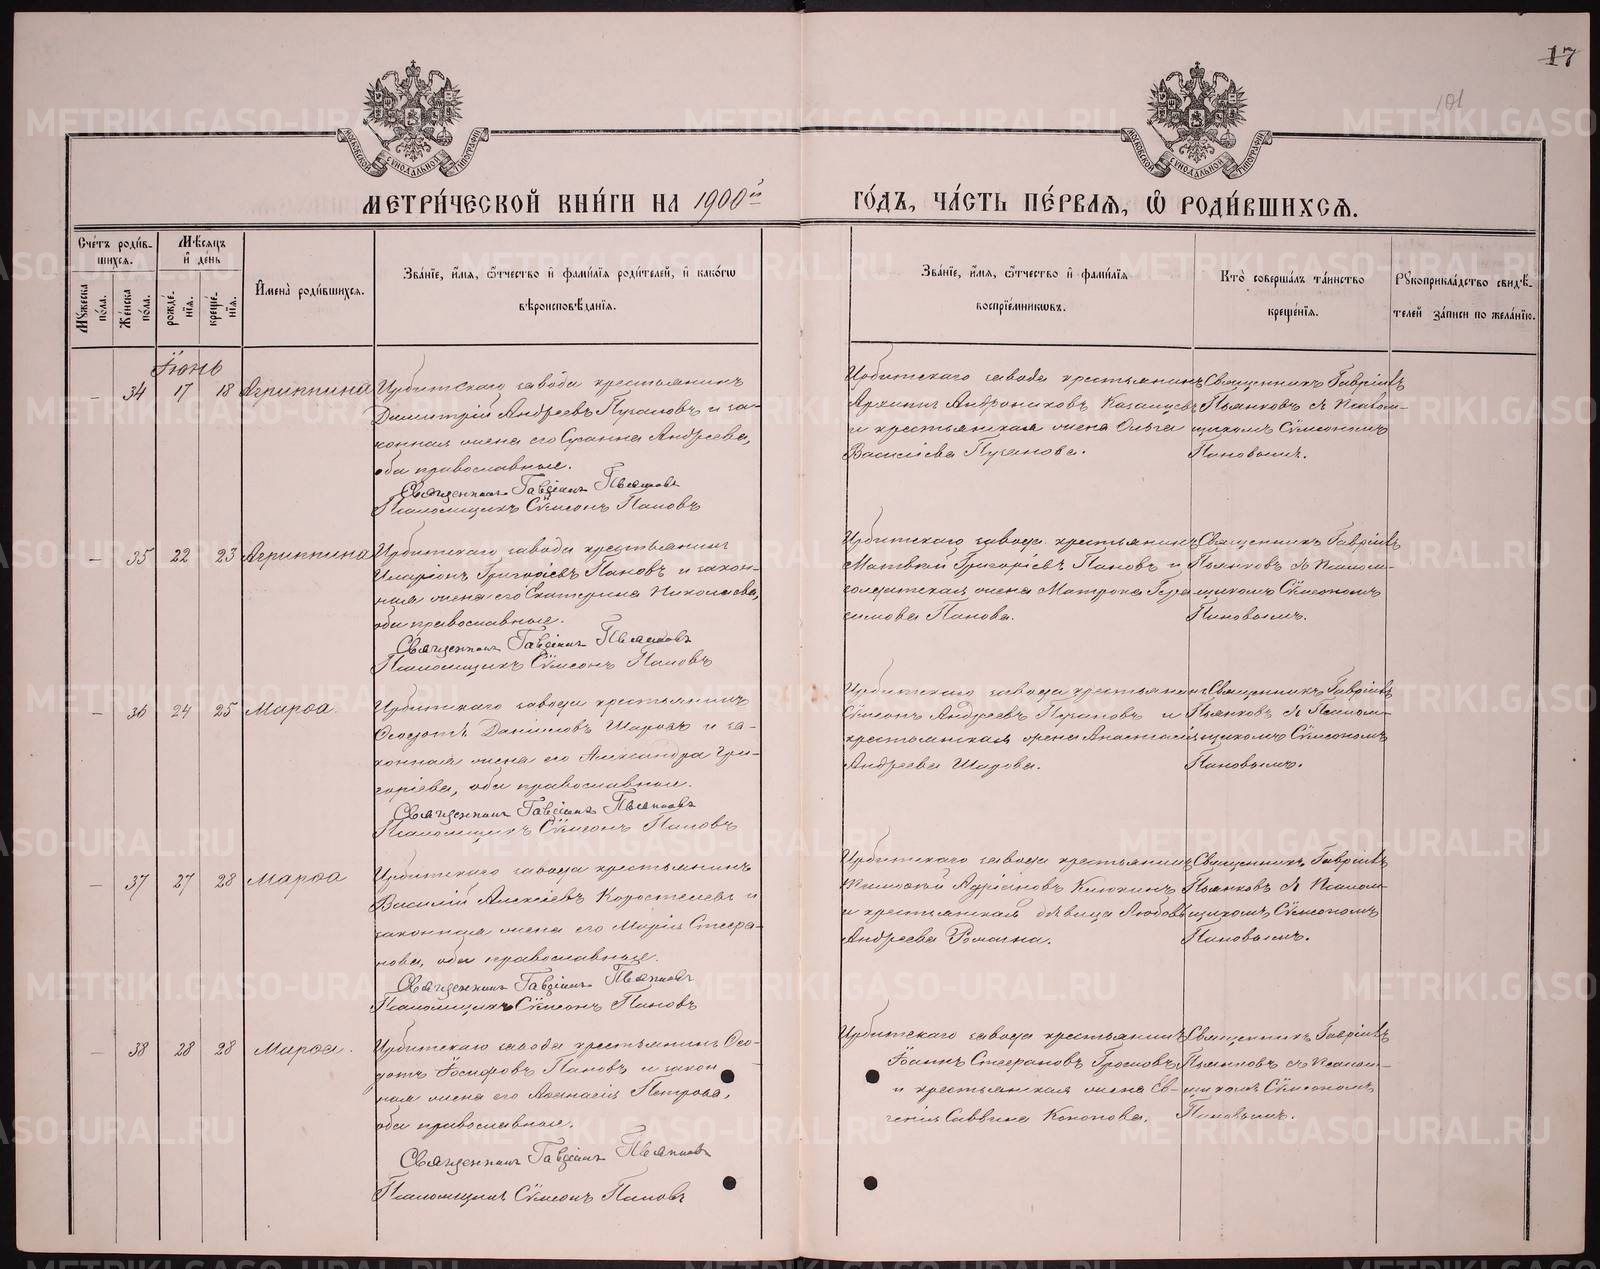 17
101
МОСКОВСКОЙ СУНОДАЛЬНОЙ ТИПОГРАФІИ
МОСКОВСКОЙ СУНОДАЛЬНОЙ ТИПОГРАФІИ
МЕТРИ́ЧЕСКОЙ КНИ́ГИ НА 1900й
ГО́ДЪ, ЧА́СТЬ ПЕ́РВАЯ, Ѽ РОДИ́ВШИХСЯ.
Сче́тъ роди́в-
шихся.
Мѣ́сяцъ
и҆ де́нь
Му́жеска по́ла.
Же́нска по́ла.
рожде́-
нїя.
креще́-
нїя.
И҆мена̀ роди́вшихся.
Зва́нїе, и҆́мя, ѻ҆́тчество и҆ фами́лїя роди́телей, и҆ како́гѡ
вѣроисповѣ́данїя.
Зва́нїе, и҆́мя, ѻ҆́тчество и҆ фами́лїя
воспрїе́мникѡвъ.
Кто̀ соверша́лъ та́инство
креще́нїя.
Рукоприкла́дство свидѣ́-
телей за́писи по жела́нїю.
Іюнь
— 34 17 18 Агриппина
Ирбитскаго завода крестьянинъ
Димитрій Андреевъ Пузановъ и за-
конная жена его Сусанна Андреева,
оба православные.
Священникъ Гавріилъ Пьянковъ
Псаломщикъ Сѵмеонъ Пановъ
Ирбитскаго завода крестьянинъ
Архипъ Андрониковъ Казанцевъ
и крестьянская жена Ольга
Васильева Пузанова.
Священникъ Гавріилъ
Пьянковъ съ Псалом-
щикомъ Сѵмеономъ
Пановымъ.
— 35 22 23 Агриппина
Ирбитскаго завода крестьянинъ
Иларіонъ Григорьевъ Пановъ и закон-
ная жена его Екатерина Николаева,
оба православные.
Священникъ Гавріилъ Пьянковъ
Псаломщикъ Сѵмеонъ Пановъ
Ирбитскаго завода крестьянинъ
Матвѣй Григоріевъ Пановъ и
солдатская жена Матрона Гера
симова Панова.
Священникъ Гавріилъ
Пьянковъ съ Псалом-
щикомъ Сѵмеономъ
Пановымъ.
— 36 24 25 Марѳа
Ирбитскаго завода крестьянинъ
Ѳеодотъ Даніиловъ Шадовъ и за-
конная жена его Александра Гри-
горіева, оба православные.
Священникъ Гавріилъ Пьянковъ
Псаломщикъ Сѵмеонъ Пановъ
Ирбитскаго завода крестьянинъ
Сѵмеонъ Андреевъ Пузановъ и
крестьянская жена Анастасія
Андреева Шадова.
Священникъ Гавріилъ
Пьянковъ съ Псалом-
щикомъ Сѵмеономъ
Пановымъ.
— 37 27 28 Марѳа
Ирбитскаго завода крестьянинъ
Василій Алексіевъ Коростелевъ и
законная жена его Марія Стефа-
нова, оба православные.
Священникъ Гавріилъ Пьянковъ
Псаломщикъ Сѵмеонъ Пановъ
Ирбитскаго завода крестьянинъ
Адріановъ Клюкинъ
и крестьянская дѣвица Любовь
Андреева Фомина.
Священникъ Гавріилъ
Пьянковъ съ Псалом-
щикомъ Сѵмеономъ
Пановымъ.
— 38 28 28 Марѳа.
Ирбитскаго завода крестьянинъ Ѳео-
дотъ Іосифовъ Пановъ и закон
ная жена его Аѳанасія Петрова,
оба православные.
Священникъ Гавріилъ Пьянковъ
Псаломщикъ Сѵмеонъ Пановъ
Ирбитскаго завода крестьянинъ
Іоаннъ Стефановъ Грошовъ
и крестьянская жена Ев-
генія Саввина Кононова.
Священникъ Гавріилъ
Пьянковъ съ Псалом-
щикомъ Сѵмеономъ
Пановымъ.
METRIKI.GASO-URAL.RU